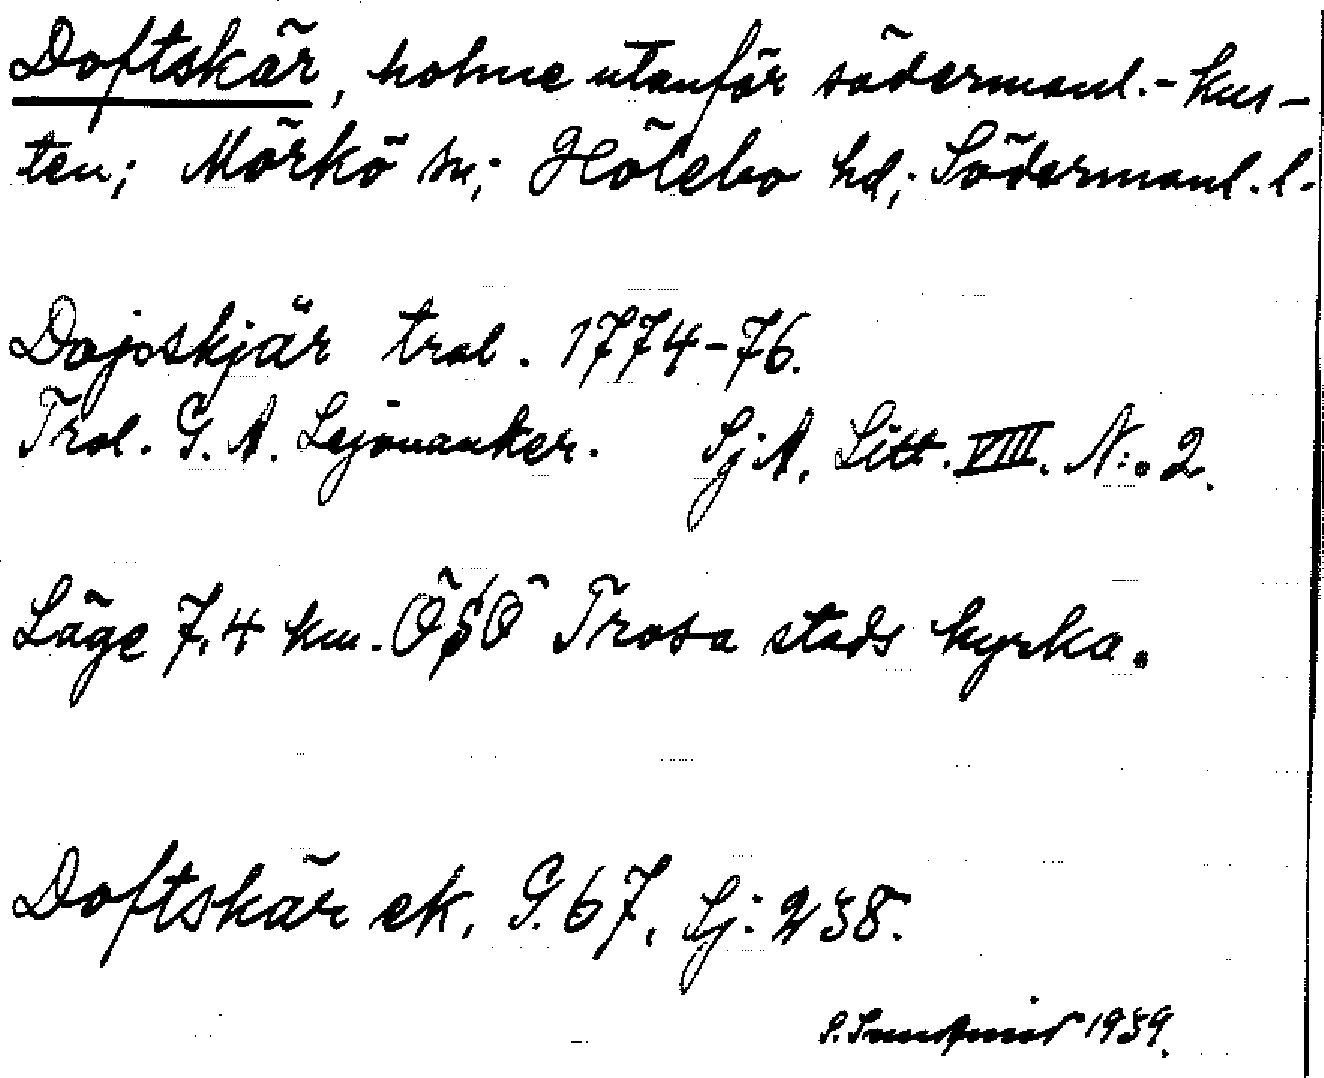 Doftskär, holme utanför södermanl.-kus-
ten; Mörkö sn; Hölebo hd; Södermanl. l.
Dojsskjär trol. 1774-76.
Trol. G. A. Lejonanker. Sj A. Litt. VIII. N:o 2.
Läge 7,4 km. ÖSÖ Trosa stads kyrka.
Doftskär ek. G. 67, Sj: 238.
1939.